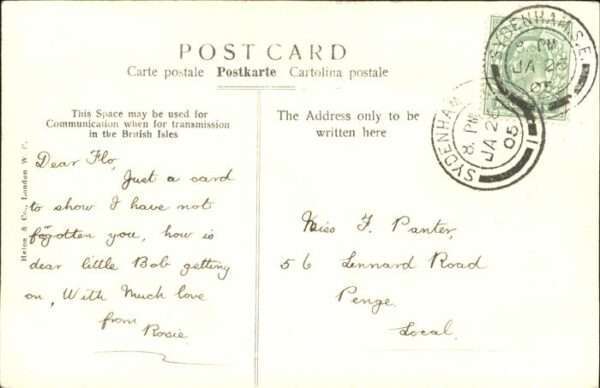 POST CARD
Carte postale Postkarte Cartolina postale
This Space may be used for
Communication when for transmission
in the British Isles
The Address only to be
written here
Dear Flo,
Just a card
to show I have not
fogotten you, how is
dear little Bob getting
on, With Much love
from
Rosie
Miss F. Panter,
56 Lennard Road
Penge.
Local.
SYDENHAM S.E.
8. PM
JA 28
05
SYDENHAM
8. PM
JA 28
05
& Co., London W.